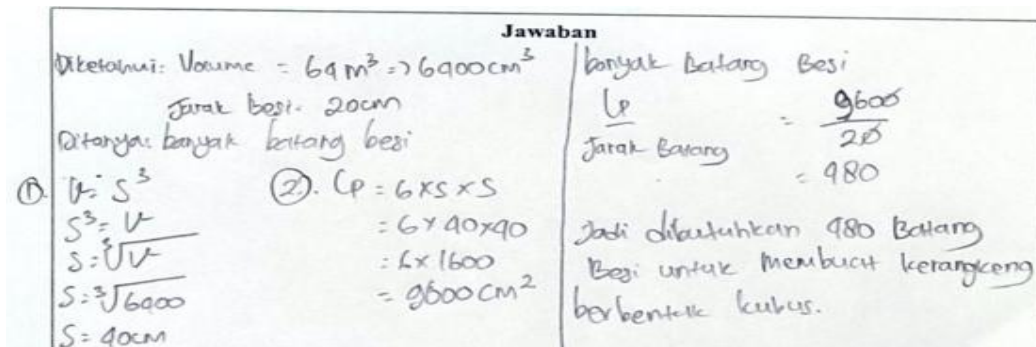 Jawaban
Diketahui: Volume = 64 m³ => 6400 cm³
Jarak besi = 20cm
Ditanya: banyak batang besi
① V = S³
S³ = V
S = ³√V
S = ³√6400
S = 40cm
②. Lp = 6 x S x S
= 6 x 40 x 40
= 6 x 1600
= 9600 cm²
banyak Batang Besi
Lp / Jarak Batang = 9600 / 20
= 480
Jadi dibutuhkan 480 Batang
Besi untuk membuat kerangkeng
berbentuk kubus.